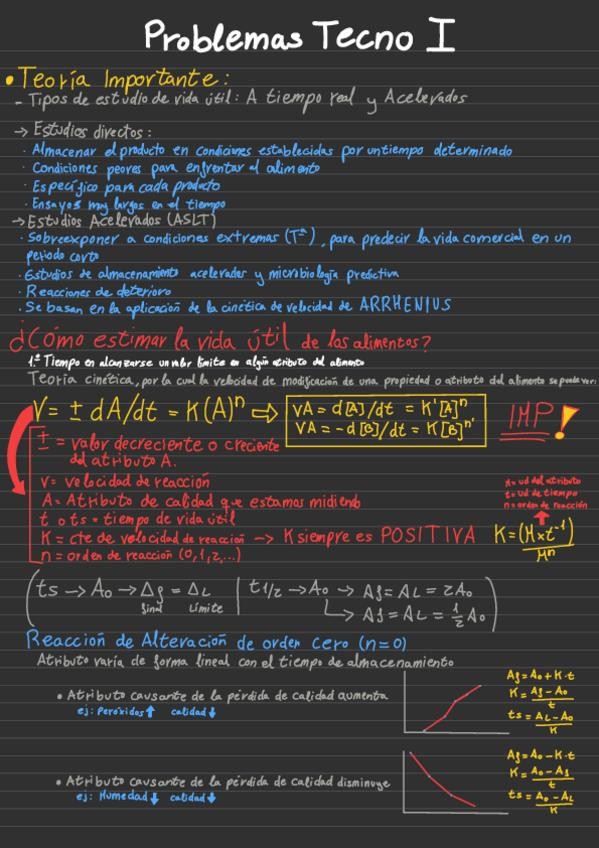 Problemas Tecno I
• Teoría Importante:
- Tipos de estudio de vida útil: A tiempo real y Acelerados
→ Estudios directos:
· Almacenar el producto en condiciones establecidas por un tiempo determinado
· Condiciones peores para enfrentar al alimento
· Específico para cada producto
· Ensayos muy largos en el tiempo
→ Estudios Acelerados (ASLT)
· Sobreexponer a condiciones extremas (Tª), para predecir la vida comercial en un
periodo corto
· Estudios de almacenamiento acelerados y microbiología predictiva
· Reacciones de deterioro
· Se basan en la aplicación de la cinética de velocidad de ARRHENIUS
¿Cómo estimar la vida útil de los alimentos?
1.º Tiempo en alcanzarse un valor límite en algún atributo del alimento
Teoría cinética, por la cual la velocidad de modificación de una propiedad o atributo del alimento se puede ver:
V = ± dA/dt = K(A)^n ⇒
VA = d[A]/dt = K'[A]^n
VA = -d[B]/dt = K[B]^n'
IMP!
± = valor decreciente o creciente
del atributo A.
V = velocidad de reacción
A = Atributo de calidad que estamos midiendo
t o ts = tiempo de vida útil
K = cte de velocidad de reacción → K siempre es POSITIVA
n = orden de reacción (0,1,2,...)
M = ud del atributo
t = ud de tiempo
n = orden de reacción
K = (M × t^-1) / M^n
(ts → A0 → Af = AL | t1/2 → A0 → Af = AL = 2A0
final Límite
↳ Af = AL = 1/2 A0)
Reacción de Alteración de orden cero (n=0)
Atributo varía de forma lineal con el tiempo de almacenamiento
• Atributo causante de la pérdida de calidad aumenta
ej: Peróxidos ↑ calidad ↓
Af = A0 + K·t
K = Af - A0 / t
ts = AL - A0 / K
• Atributo causante de la pérdida de calidad disminuye
ej: Humedad ↓ calidad ↓
Af = A0 - K·t
K = A0 - Af / t
ts = A0 - AL / K